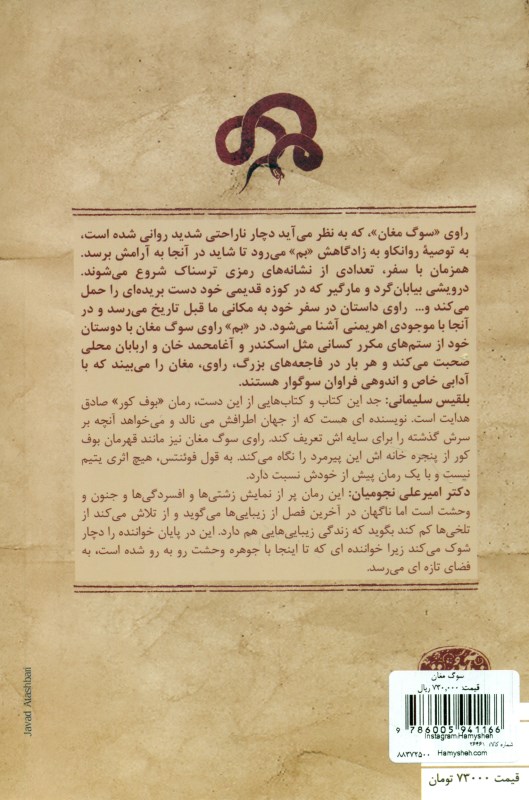 راوی «سوگ مغان»، که به نظر می‌آید دچار ناراحتی شدید روانی شده است،
به توصیهٔ روانکاو به زادگاهش «بم» می‌رود تا شاید در آنجا به آرامش برسد.
همزمان با سفر، تعدادی از نشانه‌های رمزی ترسناک شروع می‌شوند.
درویشی بیابان‌گرد و مارگیر که در کوزه قدیمی خود دست بریده‌ای را حمل
می‌کند و... راوی داستان در سفر خود به مکانی ما قبل تاریخ می‌رسد و در
آنجا با موجودی اهریمنی آشنا می‌شود. در «بم» راوی سوگ مغان با دوستان
خود از ستم‌های مکرر کسانی مثل اسکندر و آغامحمد خان و اربابان محلی
صحبت می‌کند و هر بار در فاجعه‌های بزرگ، راوی، مغان را می‌بیند که با
آدابی خاص و اندوهی فراوان سوگوار هستند.
بلقیس سلیمانی: جد این کتاب و کتاب‌هایی از این دست، رمان «بوف کور» صادق
هدایت است. نویسنده ای هست که از جهان اطرافش می نالد و می‌خواهد آنچه بر
سرش گذشته را برای سایه اش تعریف کند. راوی سوگ مغان نیز مانند قهرمان بوف
کور از پنجره خانه اش این پیرمرد را نگاه می‌کند. به قول فوئنتس، هیچ اثری یتیم
نیست و با یک رمان پیش از خودش نسبت دارد.
دکتر امیرعلی نجومیان: این رمان پر از نمایش زشتی‌ها و افسردگی‌ها و جنون و
وحشت است اما ناگهان در آخرین فصل از زیبایی‌ها می‌گوید و از تلاش می‌کند از
تلخی‌ها کم کند بگوید که زندگی زیبایی‌هایی هم دارد. این در پایان خواننده را دچار
شوک می‌کند زیرا خواننده ای که تا اینجا با جوهره وحشت رو به رو شده است، به
فضای تازه ای می‌رسد.
Javad Atashbari
سوگ مغان
قیمت ۷۳۰،۰۰۰ ریال
9 786005 941166
Instagram:Hamysheh
شماره کالا: ۲۶۴۶۱
Hamysheh.com ۸۸۳۷۲۵۰۰
قیمت ۷۳۰۰۰ تومان